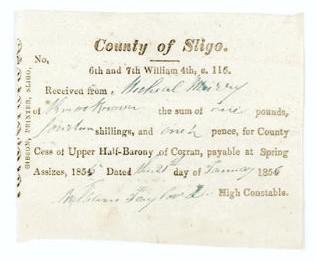 County of Sligo.
No,
6th and 7th William 4th, c. 116.
Received from Micheal Murry
of the sum of one pounds,
fourteen shillings, and pence, for County
Cess of Upper Half-Barony of Corran, payable at Spring
Assizes, 1856 Dated day of January 1856
William Taylor High Constable.
GIBSON, PRINTER, SLIGO,